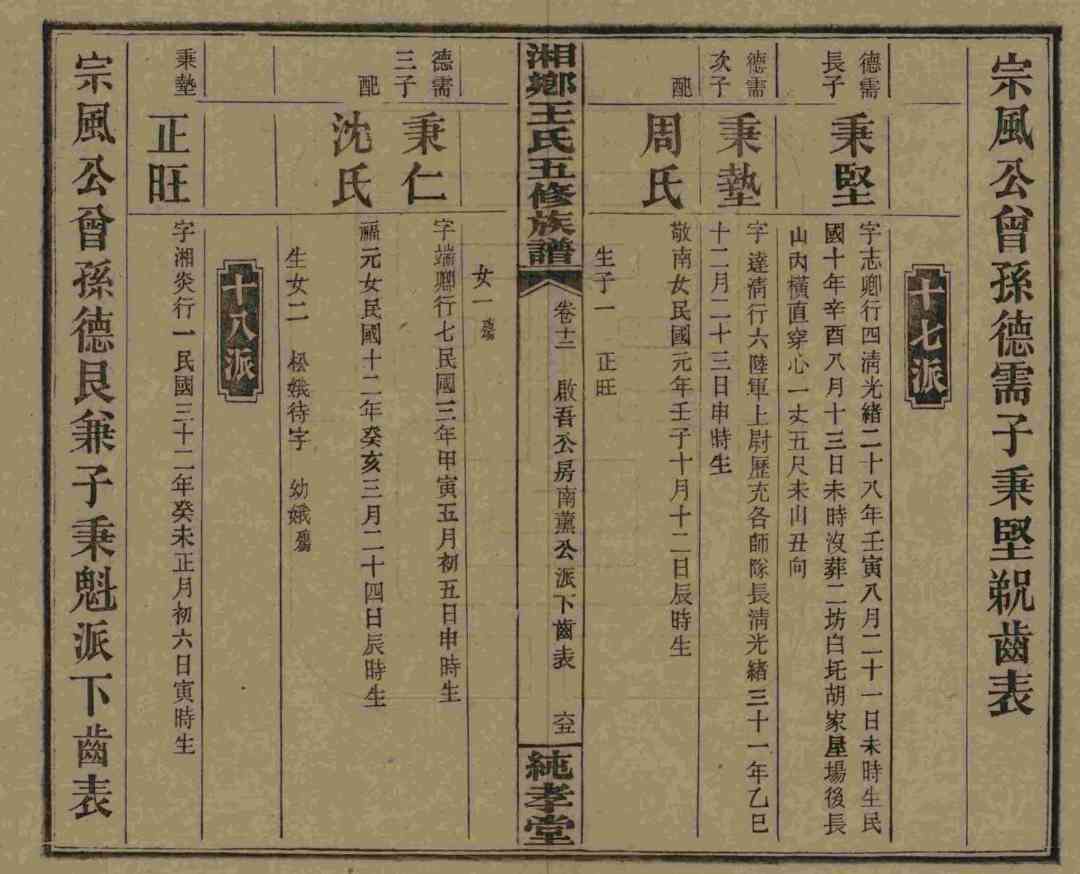 宗風公曾孫德需子秉堅剶齒表
十七派
德需
長子
秉堅
字志卿行四淸光緒二十八年壬寅八月二十一日未時生民
國十年辛酉八月十三日未時沒葬二坊白圫胡家屋場後長
山內橫直穿心一丈五尺未山丑向
德需
次子
秉墊
字達淸行六陸軍上尉歷充各師隊長淸光緒三十一年乙巳
十二月二十三日申時生
配
周氏
敬南女民國元年壬子十月十二日辰時生
生子一 正旺
湘鄉王氏五修族譜
卷十二 啟吾公房南薰公派下齒表 六五
純孝堂
女一
德需
三子
秉仁
字端卿行七民國三年甲寅五月初五日申時生
配
沈氏
福元女民國十二年癸亥三月二十四日辰時生
生女二 松娥待字 幼娥殤
十八派
秉墊
正旺
字湘炎行一民國三十二年癸未正月初六日寅時生
宗風公曾孫德艮兼子秉魁派下齒表